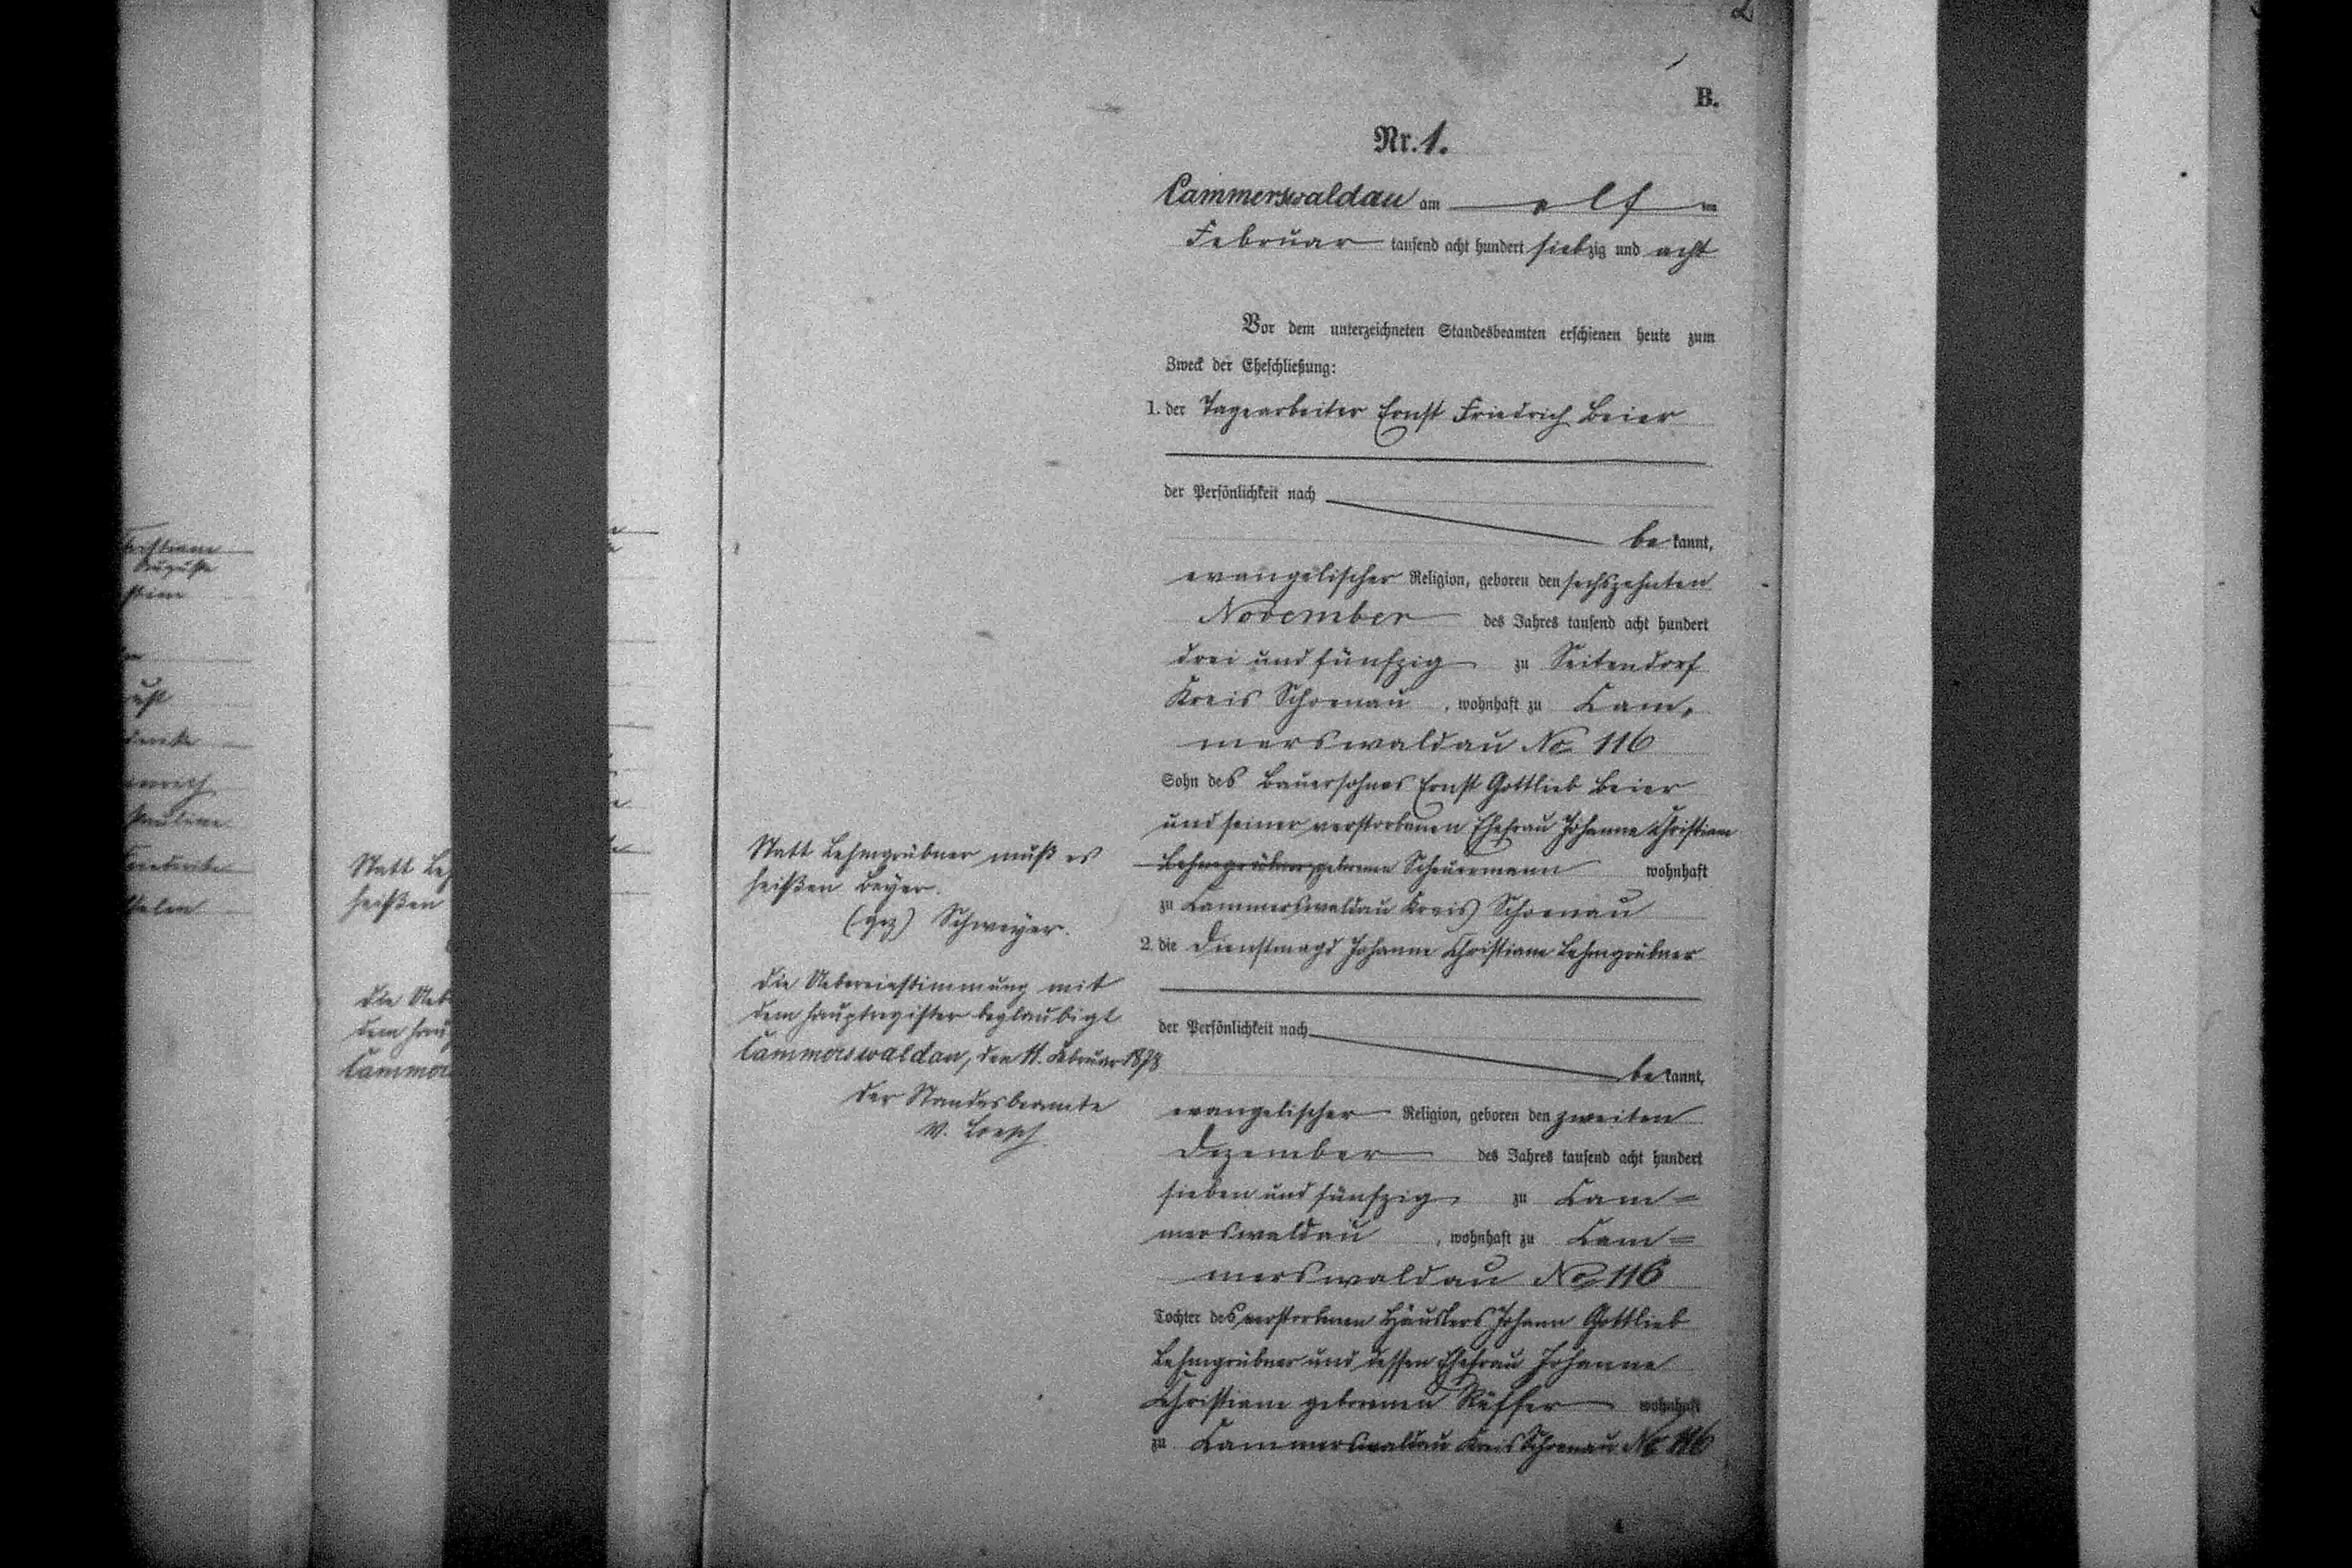 2
B.
Nr. 1.
Cammerswaldau am elf ten
Februar tausend acht hundert siebzig und acht
Vor dem unterzeichneten Standesbeamten erschienen heute zum
Zweck der Eheschließung:
1. der Tagearbeiter Ernst Friedrich Beier
der Persönlichkeit nach
be kannt,
evangelischer Religion, geboren den sechszehnten
November des Jahres tausend acht hundert
drei und fünfzig zu Seitendorf
Kreis Schoenau, wohnhaft zu Cam,
merswaldau No 116
Sohn des Bauersohnes Ernst Gottlieb Beier
und seiner verstorbenen Ehefrau Johanne Christiane
Lehmgrübner geborenen Scheuermann wohnhaft
zu Cammerswaldau Kreis Schoenau
2. die Dienstmagd Johanne Christiane Lehmgrübner
der Persönlichkeit nach
be kannt,
evangelischer Religion, geboren den zweiten
Dezember des Jahres tausend acht hundert
sieben und fünfzig zu Cam=
merswaldau, wohnhaft zu Cam=
merswaldau No 116
Tochter des verstorbenen Häuslers Johann Gottlieb
Lehmgrübner und dessen Ehefrau Johanne
Christiane geborenen Rüffer wohnhaft
zu Cammerswaldau Kreis Schoenau No 116
Statt Lehmgrübner muß es
heißen Beyer.
(gez) Schweyer.
Die Uebereinstimmung mit
dem Hauptregister beglaubigt
Cammerswaldau, den 11. Februar 1878
Der Standesbeamte
v. Loesch
Statt Leh
heißen
Die Ueb
dem Hau
Cammer